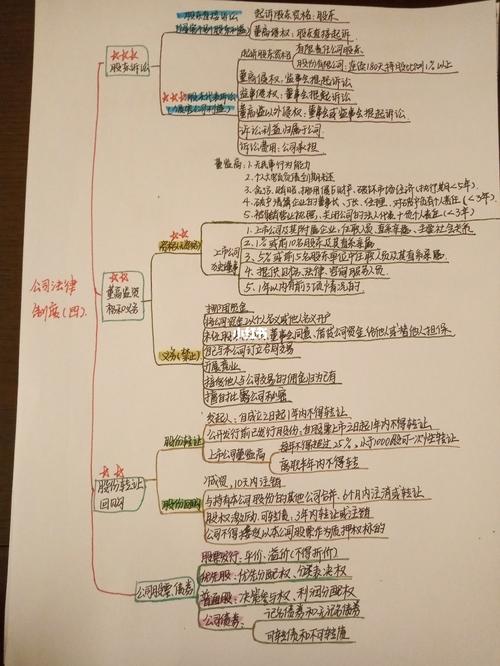 公司法律
制度(四)
股东诉讼
股东直接诉讼
起诉股东资格：股东
董高侵权：股东直接起诉
股东代表诉讼
起诉股东资格
有限责任公司股东
股份有限公司：连续180天持股比例1%以上
董高侵权，监事会提起诉讼
监事侵权：董事会提起诉讼
董高监以外侵权：董事会或监事会提起诉讼
诉讼利益归属于公司
诉讼费用：公司承担
董高监资
格和义务
资格(消极)
董监高：1.无民事行为能力
2.个人大额负债到期未还
3.贪污、贿赂、挪用、侵占财产、破坏市场经济(执行期满<5年)
4.破产清算企业的董事长、厂长、经理，对破产负有个人责任(<3年)
5.被吊销营业执照、关闭公司的法人代表+负个人责任(<3年)
上市公司
独立董事
1.上市公司及其附属企业，任职人员、直系亲属、主要社会关系
2.1%或前10名股东及其直系亲属
3.5%或前5名股东单位中任职人员及其直系亲属
4.提供财务、法律、咨询服务人员
5.1年以内有前3项情况的
义务(禁止)
挪用资金
将公司资金以个人名义或他人名义开户
未经股东会、董事会同意，借贷公司资金给他人或替他人担保
自己与本公司订立合同交易
开展营业
接受他人与公司交易的佣金归为己有
擅自批露公司秘密
小红书
股份转让
回购
股份转让
发起人：自成立之日起1年内不得转让
公开发行前已发行股份，自股票上市之日起1年内不得转让
上市公司董监高
每年不得超过25%，小于1000股可一次性转让
离职半年内不得转
股份回购
减资，10天内注销
与持有本公司股份的其他公司合并，6个月内注消或转让
股权激励、可转债，3年内转让或注销
公司不得接受以本公司股票作为质押权标的
公司股票、债券
股票发行：平价、溢价(不得折价)
优先股：优先分配权、分类表决权
普通股：决策参与权、利润分配权
公司债券：
记名债券和无记名债券
可转债和不可转债